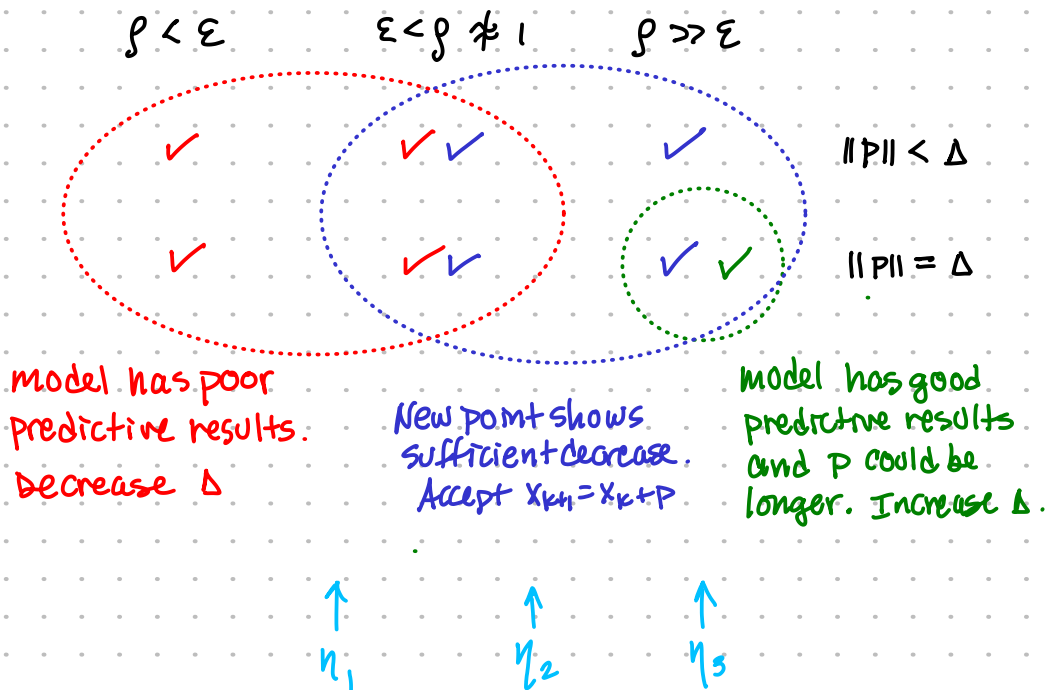 ρ < ε ε < ρ ≉ 1 ρ >> ε
✓ ✓✓ ✓ ||p|| < Δ
✓ ✓✓ ✓✓ ||p|| = Δ
model has poor
predictive results.
Decrease Δ
New point shows
sufficient decrease.
Accept xₖ₊₁ = xₖ + p
model has good
predictive results
and p could be
longer. Increase Δ.
↑ ↑ ↑
η₁ η₂ η₃